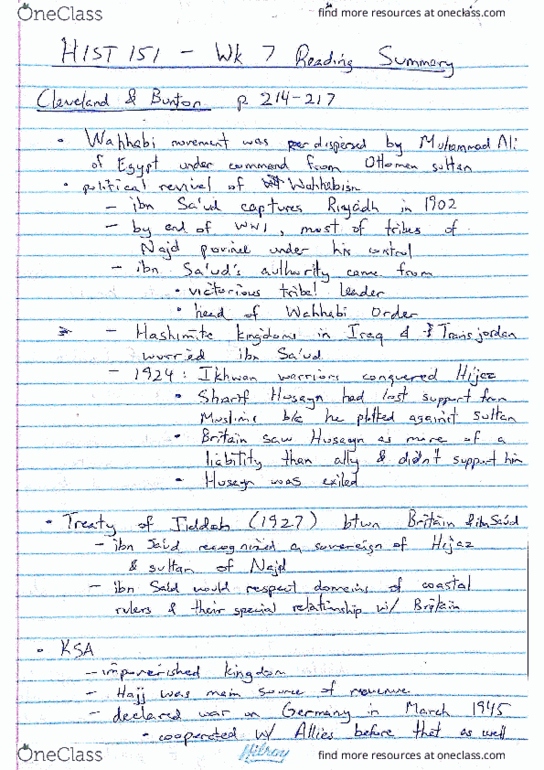 OneClass
find more resources at oneclass.com
HIST 151 - Wk 7 Reading Summary
Cleveland & Bunton p 214-217
• Wahhabi movement was dispersed by Muhammad Ali
of Egypt under command from Ottoman sultan
• political revival of Wahhabism
- ibn Sa'ud captures Riyadh in 1902
- by end of WWI, most of tribes of
Najd province under his control
- ibn Sa'ud's authority came from
• victorious tribal leader
• head of Wahhabi Order
- Hashimite kingdoms in Iraq & Transjordan
worried ibn Sa'ud
- 1924: Ikhwan warriors conquered Hijaz
• Sharif Husayn had lost support from
Muslims b/c he plotted against sultan
• Britain saw Husayn as more of a
liability than ally & didn't support him
• Husayn was exiled
• Treaty of Jiddah (1927) btwn Britain & ibn Sa'ud
- ibn Sa'ud recognized as sovereign of Hijaz
& sultan of Najd
- ibn Sa'ud would respect domains of coastal
rulers & their special relationship w/ Britain
• KSA
- impoverished kingdom
- Hajj was main source of revenue
- declared war on Germany in March 1945
• cooperated w/ Allies before that as well
OneClass
Hilroy
find more resources at oneclass.com